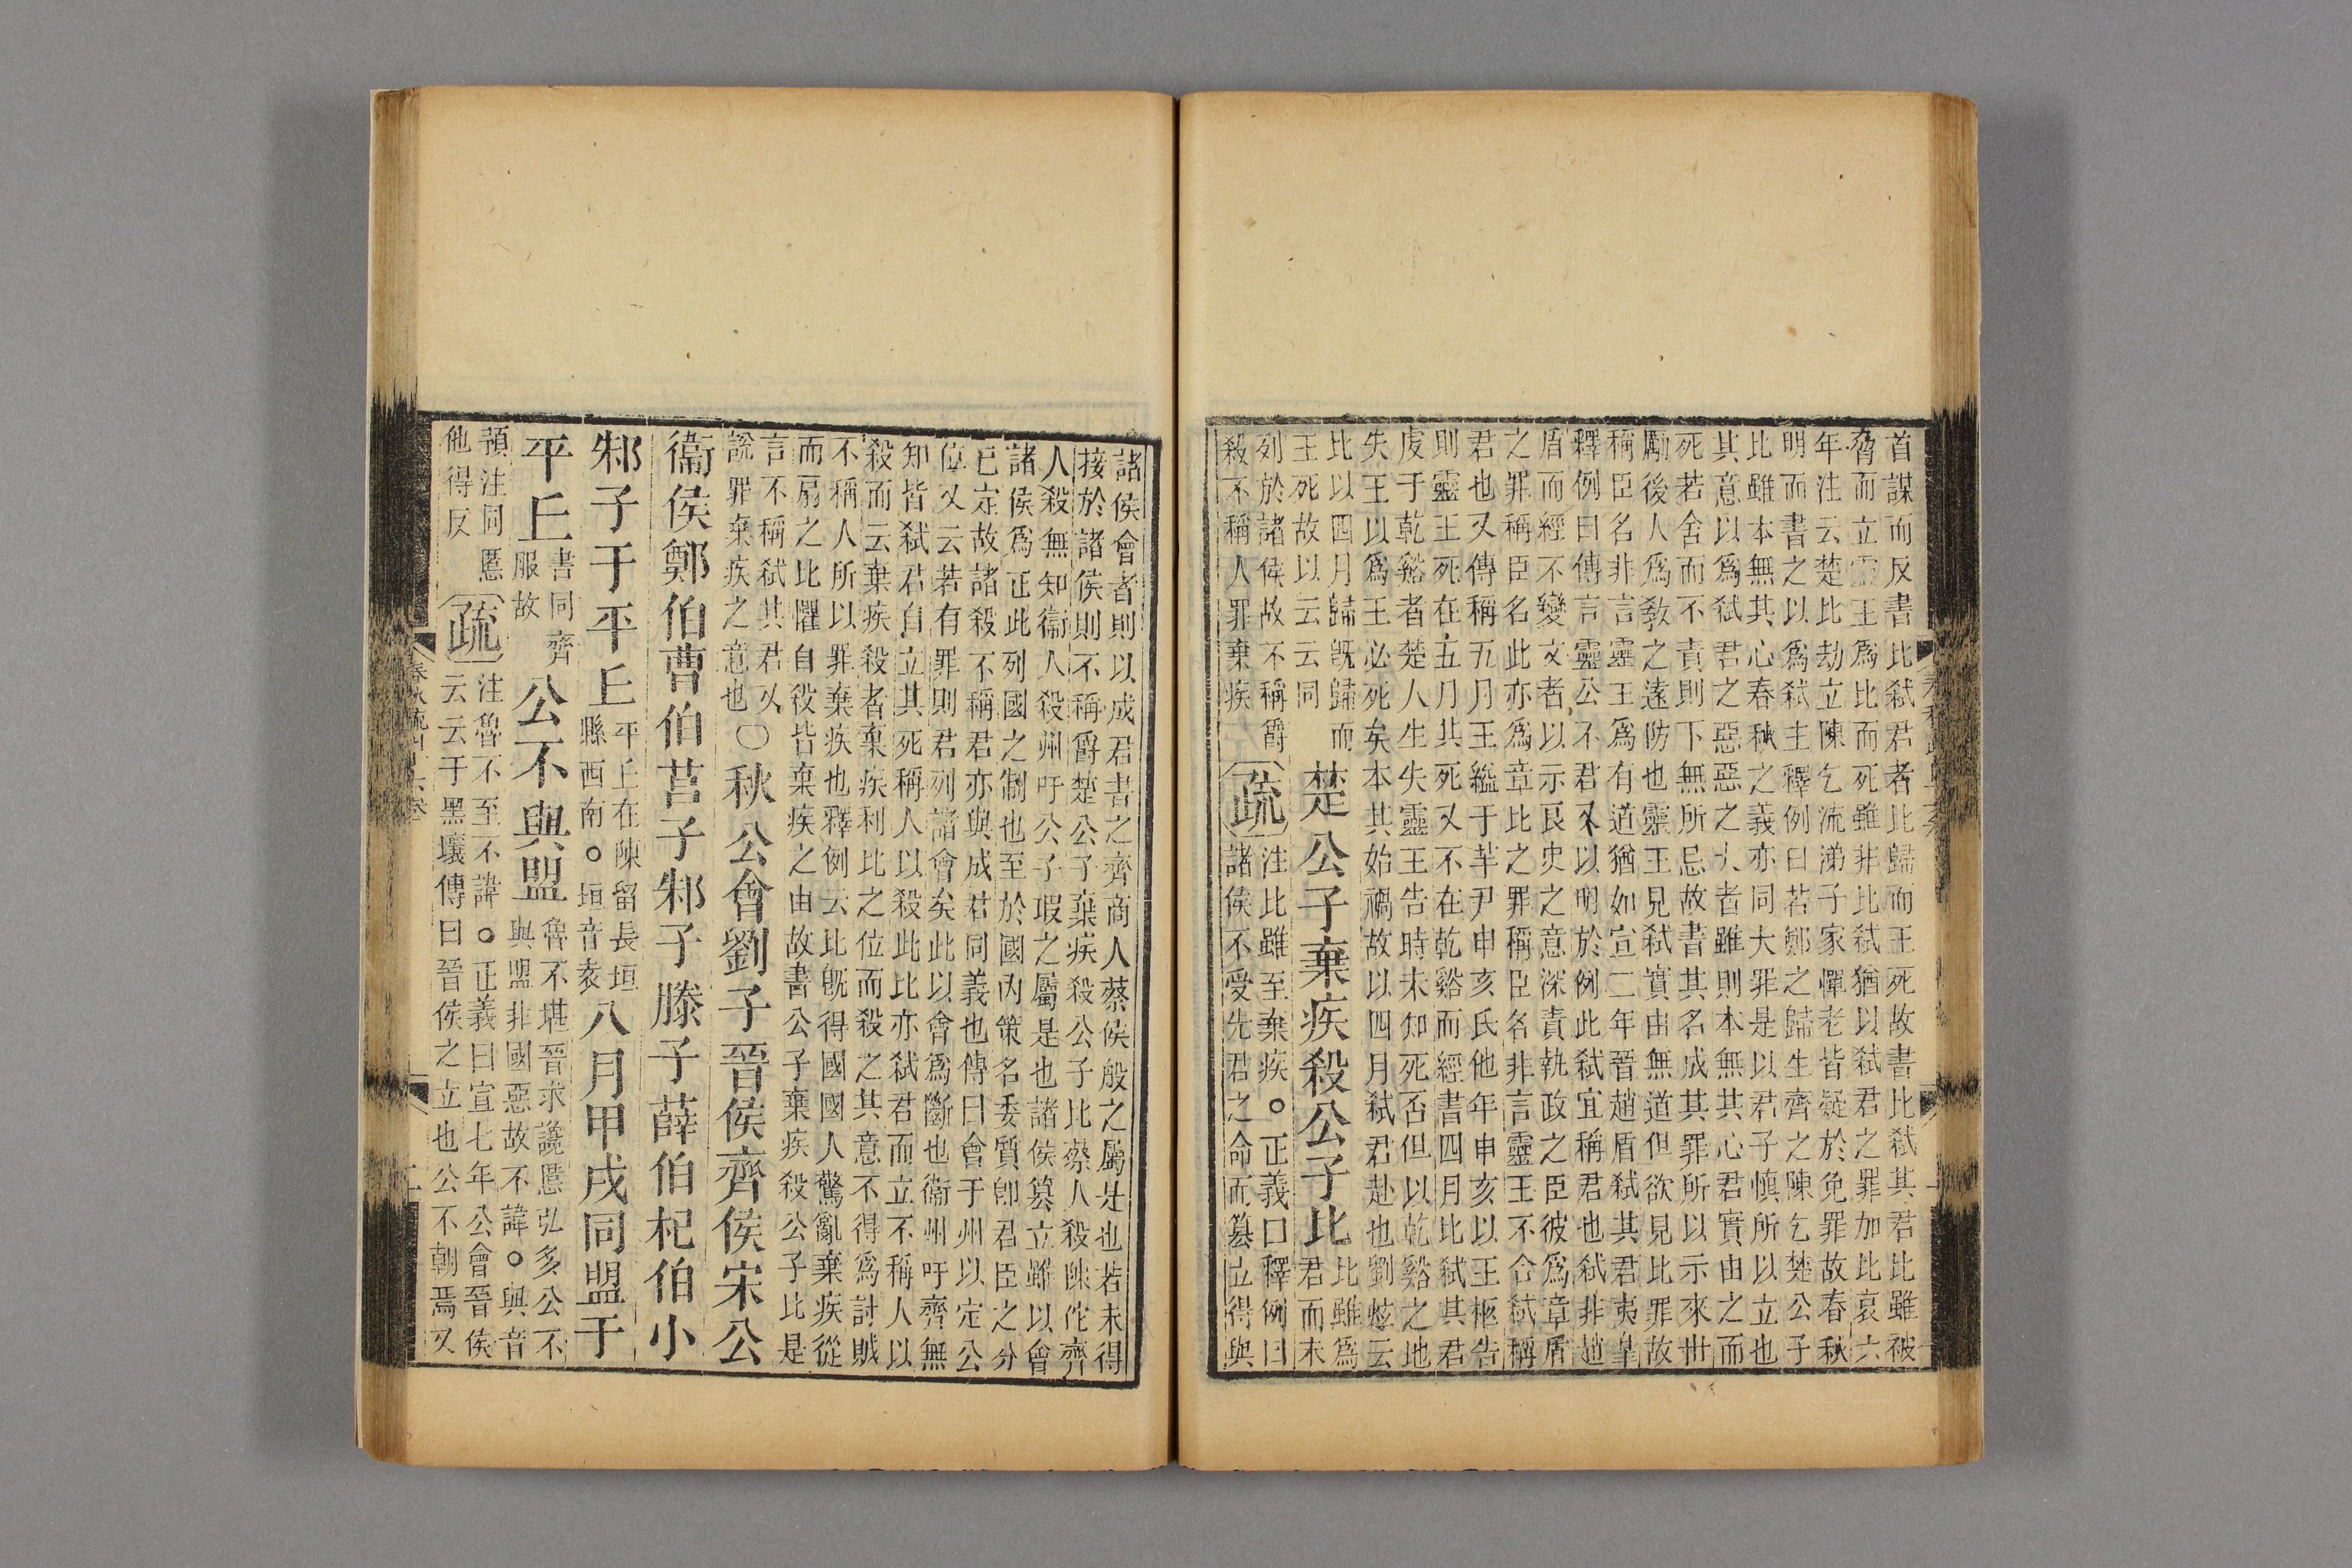 首謀而反書比弑君者比歸而王死故書比弑其君比雖被
脅而立靈王爲比而死雖非比弑猶以弑君之罪加比哀六
年注云楚比劫立陳乞流涕子家憚老皆疑於免罪故春秋
明而書之以爲弑主釋例曰若鄭之歸生齊之陳乞楚公子
比雖本無其心春秋之義亦同大罪是以君子慎所以立也
其意以爲弑君之惡惡之大者雖則本無其心君實由之而
死若舍而不責則下無所忌故書其名成其罪所以示來世
勵後人爲敎之遠防也靈王見弑實由無道但欲見比罪故
稱臣名非言靈王爲有道猶如宣二年晉趙盾弑其君夷臯
釋例曰傳言靈公不君又以明於例此弑宜稱君也弑非趙
盾而經不變文者以示良史之意深責執政之臣彼爲章盾
之罪稱臣名此亦爲章比之罪稱臣名非言靈王不合弑稱
君也又傳稱五月王縊于芉尹申亥氏他年申亥以王柩告
則靈王死在五月其死又不在乾谿而經書四月比弑其君
虔于乾谿者楚人生失靈王告時未知死否但以乾谿之地
失王以爲王必死矣本其始禍故以四月弑君赴也劉炫云
比以四月歸旣歸而
王死故以云云同
楚公子棄疾殺公子比
比雖爲
君而未
列於諸侯故不稱爵
殺不稱人罪棄疾
疏
注比雖至棄疾○正義曰釋例曰
諸侯不受先君之命而簒立得與
諸侯會者則以成君書之齊商人蔡侯般之屬是也若未得
接於諸侯則不稱爵楚公子棄疾殺公子比蔡人殺陳佗齊
人殺無知衞人殺州吁公子瑕之屬是也諸侯簒立雖以會
諸侯爲正此列國之制也至於國內策名委質卽君臣之分
已定故諸殺不稱君亦與成君同義也傳曰會于州以定公
位又云若有罪則君列諸會矣此以會爲斷也衞州吁齊無
知皆弑君自立其死稱人以殺此比亦弑君而立不稱人以
殺而云棄疾殺者棄疾利比之位而殺之其意不得爲討賊
不稱人所以罪棄疾也釋例云比旣得國國人驚亂棄疾從
而扇之比懼自殺皆棄疾之由故書公子棄疾殺公子比是
言不稱弑其君又
說罪棄疾之意也
○秋公會劉子晉侯齊侯宋公
衞侯鄭伯曹伯莒子邾子滕子薛伯杞伯小
邾子于平丘
平丘在陳留長垣
縣西南○垣音袁
八月甲戌同盟于
平丘
書同齊
服故
公不與盟
魯不堪晉求讒慝弘多公不
與盟非國惡故不諱○與音
預注同慝
他得反
疏
注魯不至不諱○正義曰宣七年公會晉侯
云云于黑壤傳曰晉侯之立也公不朝焉又